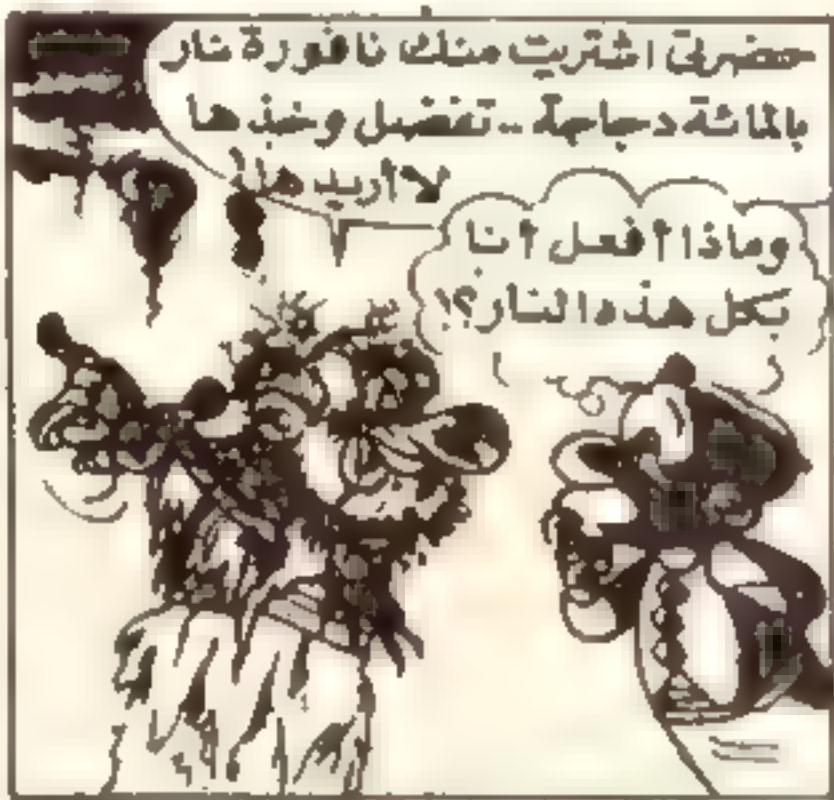 حضرتي اشتريت منك نافورة نار
بالمائة دجاجة .. تفضل وخذها
لا أريدها!
وماذا أفعل أنا
بكل هذه النار؟!